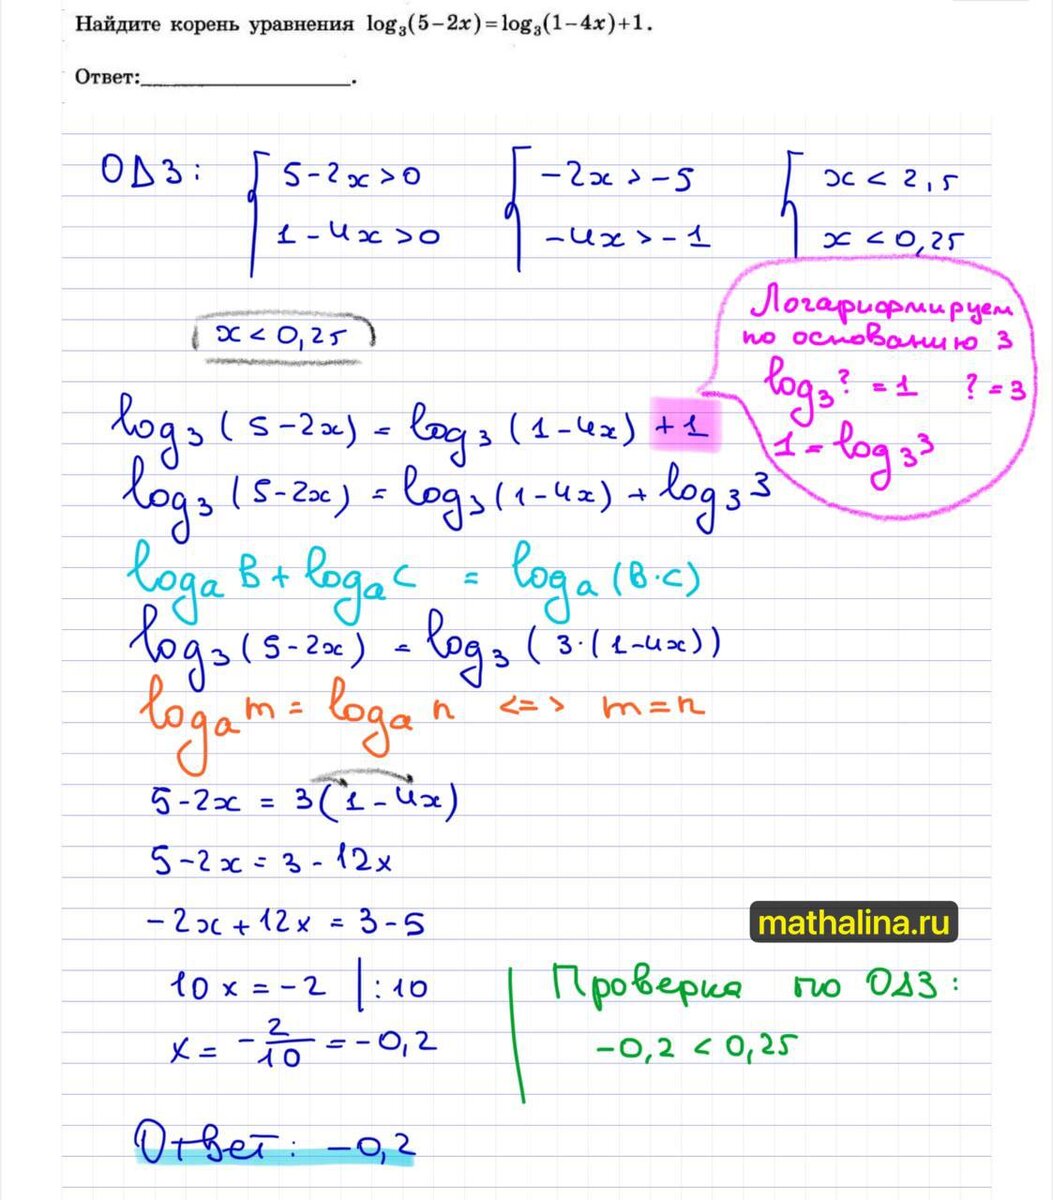 Найдите корень уравнения log₃(5−2x)=log₃(1−4x)+1.
Ответ:____________________.
ОДЗ: { 5-2x>0 { -2x>-5 { x<2,5
1-4x>0 -4x>-1 x<0,25
x<0,25
Логарифмируем
по основанию 3
log₃? = 1 ?=3
1=log₃3
log₃(5-2x) = log₃(1-4x) +1
log₃(5-2x) = log₃(1-4x) + log₃3
logₐB + logₐC = logₐ(B·C)
log₃(5-2x) = log₃(3·(1-4x))
logₐm = logₐn <=> m=n
5-2x = 3(1-4x)
5-2x = 3-12x
-2x+12x = 3-5
mathalina.ru
10x = -2 |:10
x = -2/10 = -0,2
Проверка по ОДЗ:
-0,2 < 0,25
Ответ: -0,2